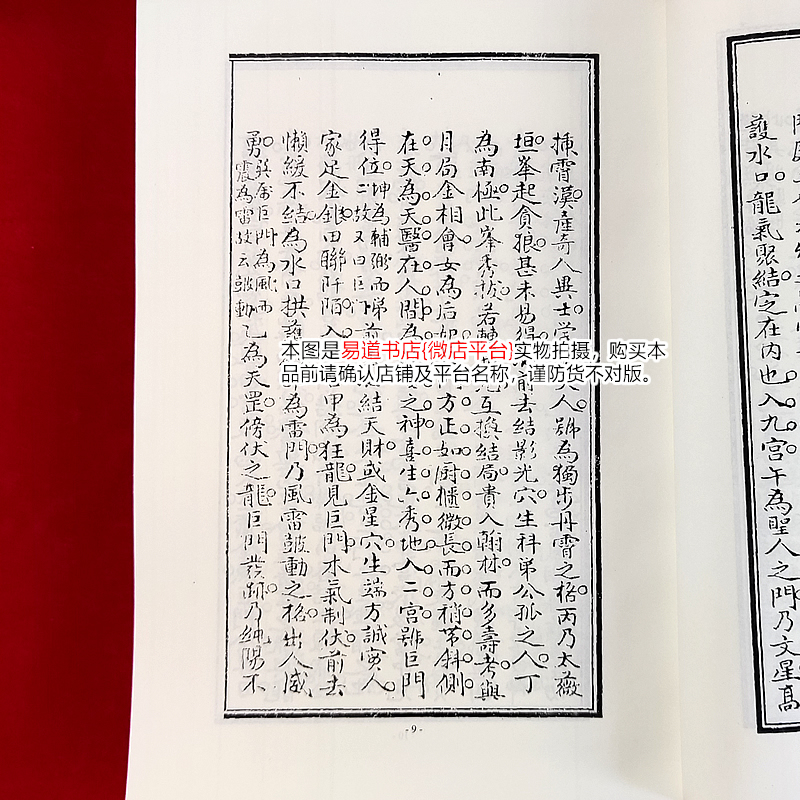 護水口龍氣聚結定在內也入九宮午為聖人之門乃文星高
插霄漢產奇人異士
人號為獨步丹霄之格丙乃太薇
垣峯起貪狼甚未易得
前去結影光穴生科第公孤之人丁
為南極此峯秀拔若轉
互換結局貴入翰林而多壽考與
月局金相會女為后如
方正如厨櫃微長而方稍帶斜側
在天為天醫在人間為
之神喜生六秀地入二宮號巨門
得位
坤為輔弼而
二故又曰巨門
結天財或金星穴生端方誠實人
家足金銀田聯阡陌入
甲為狂龍見巨門木氣制伏前去
懶緩不結為水口拱護
為雷門乃風雷鼓動之格出人威
勇
巽為風而
震為雷故云鼓動
乙為天罡傍伏之龍巨門發跡乃純陽不
本图是易道书店{微店平台}实物拍摄，购买本
品前请确认店铺及平台名称，谨防货不对版。
-9-